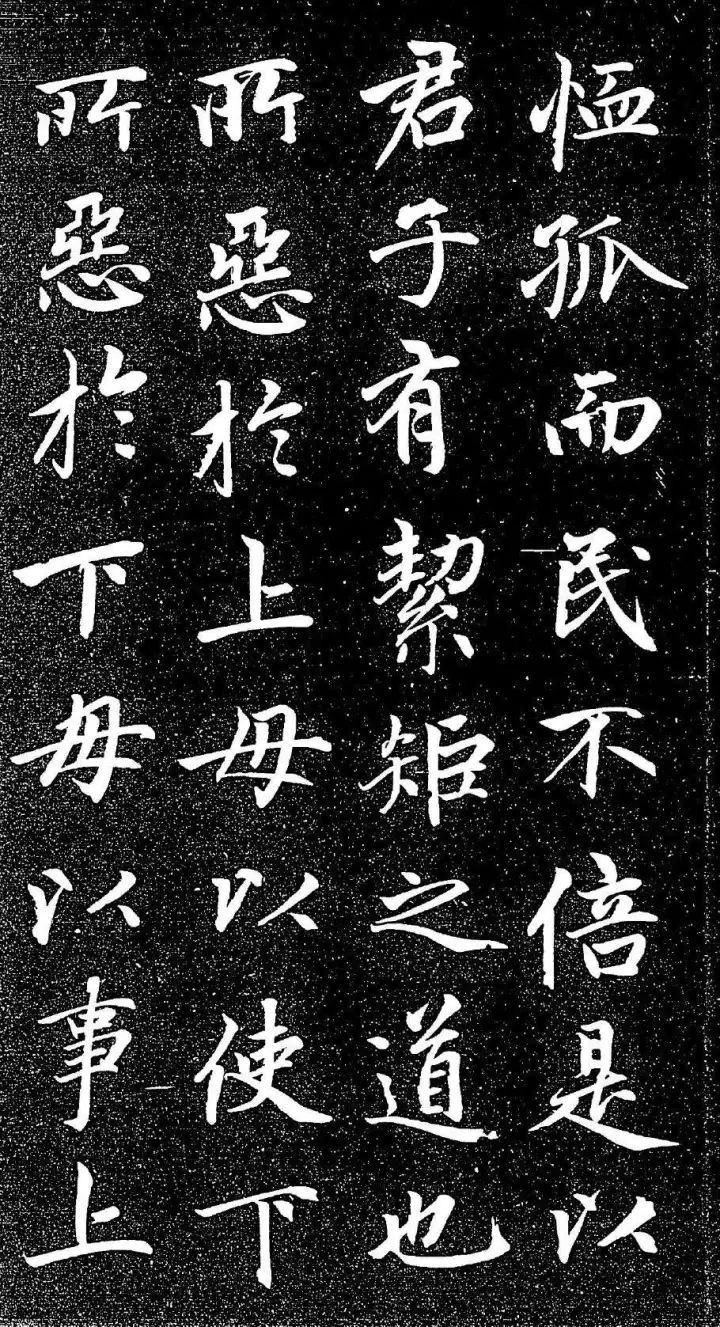 恤孤而民不倍是以
君子有絜矩之道也
所惡於上毋以使下
所惡於下毋以事上